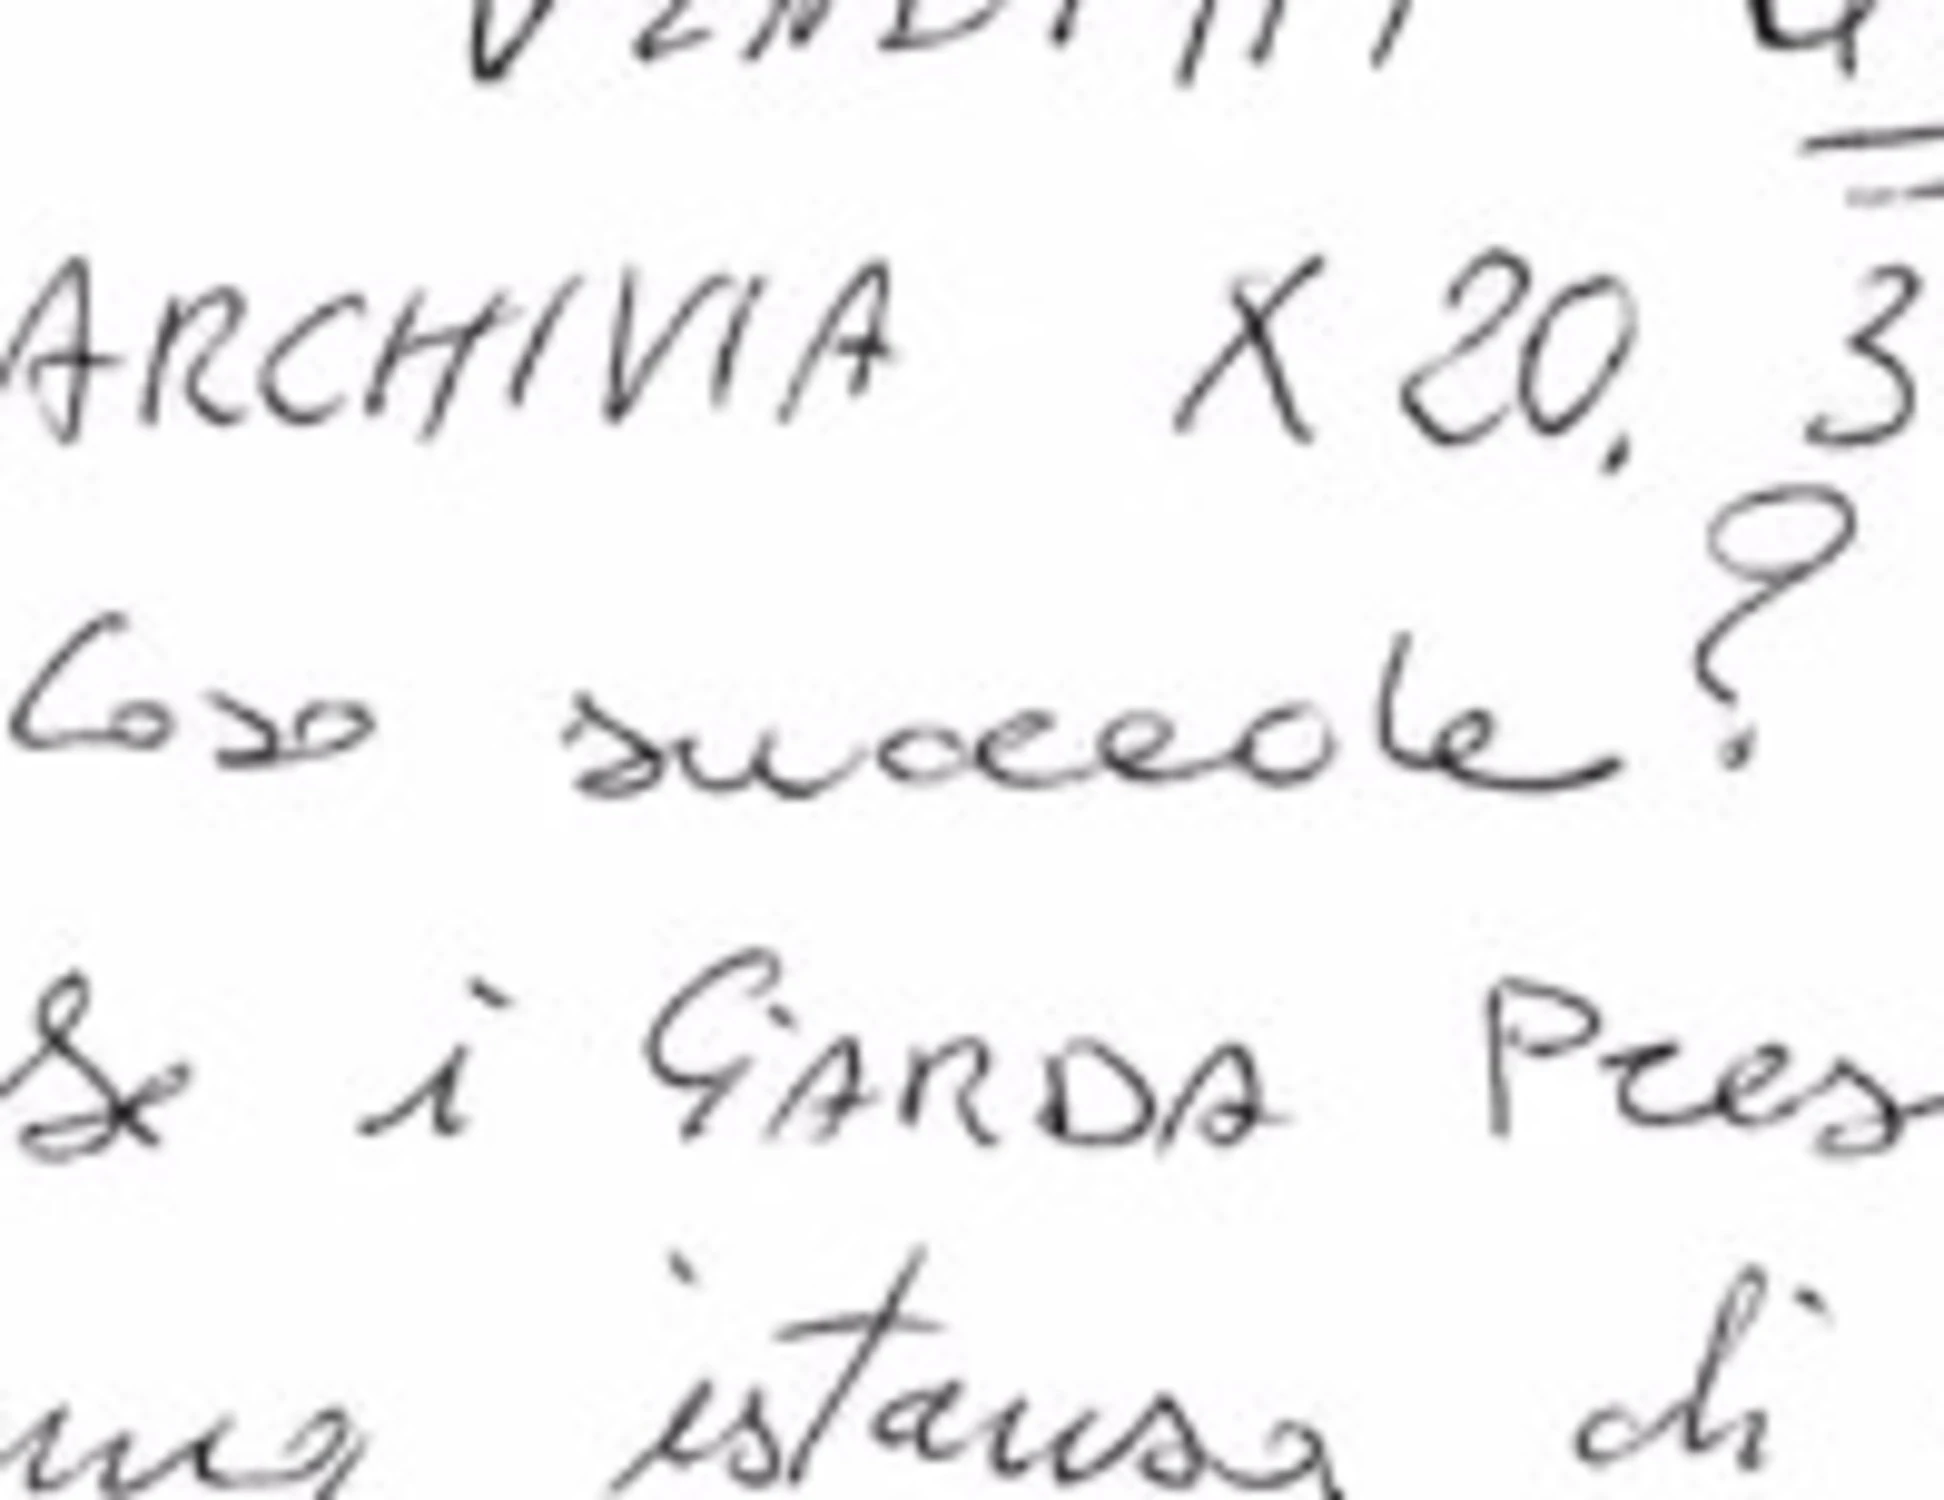 ARCHIVIA X 20. 3
Cosa succede?
Se i GARDA Pres
una istanza di